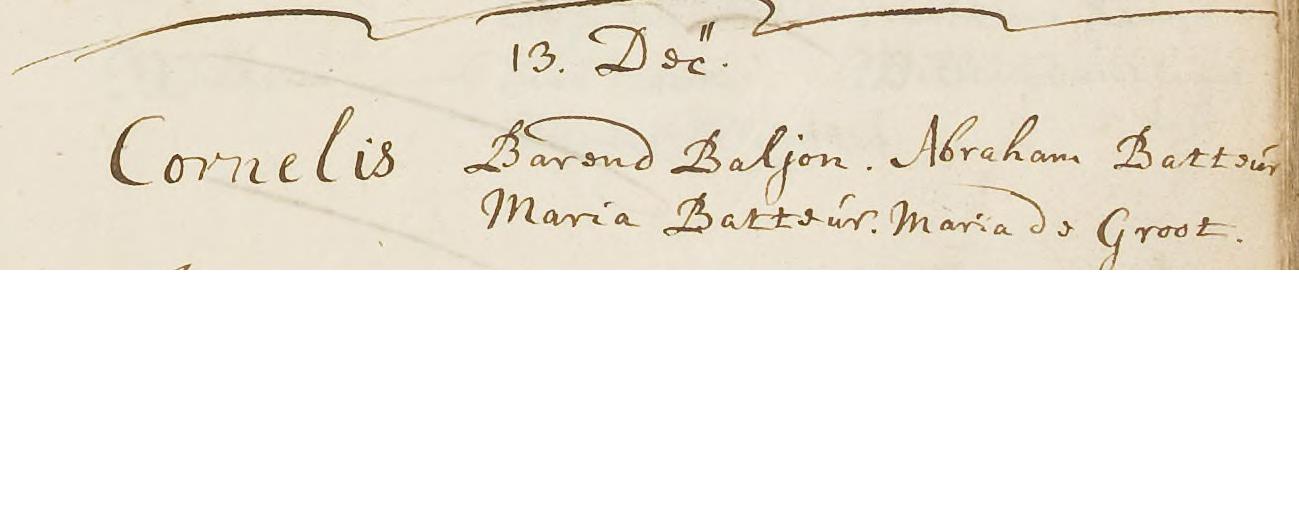 13. Dec".
Cornelis Barend Baljon. Abraham Batteúr
Maria Batteúr. Maria de Groot.